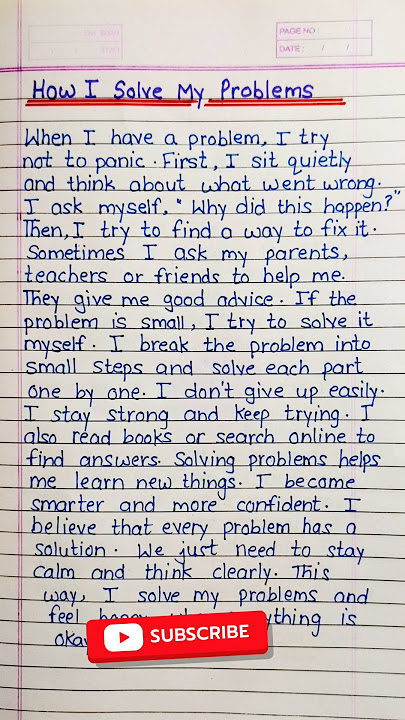 PAGE NO:
DATE: / /
How I Solve My Problems
When I have a problem, I try
not to panic. First, I sit quietly
and think about what went wrong.
I ask myself, "Why did this happen?"
Then, I try to find a way to fix it.
Sometimes I ask my parents,
teachers or friends to help me.
They give me good advice. If the
problem is small, I try to solve it
myself. I break the problem into
small steps and solve each part
one by one. I don't give up easily.
I stay strong and keep trying. I
also read books or search online to
find answers. Solving problems helps
me learn new things. I become
smarter and more confident. I
believe that every problem has a
solution. We just need to stay
calm and think clearly. This
way, I solve my problems and
feel is
SUBSCRIBE